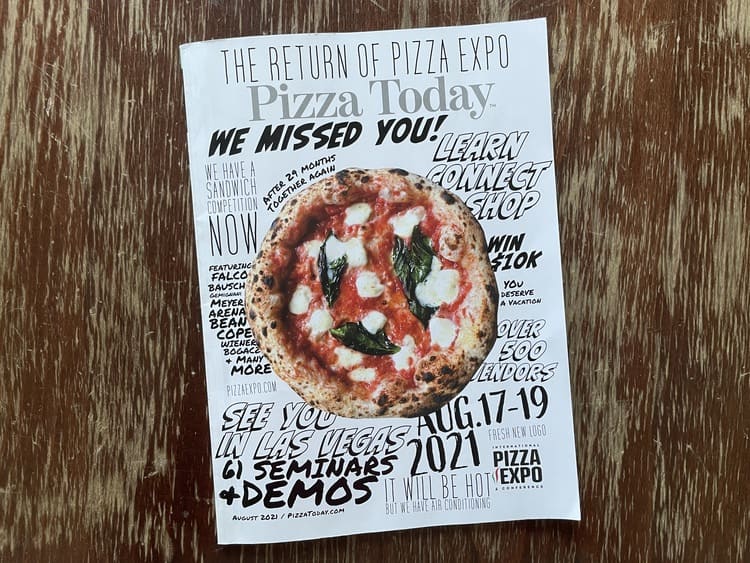 THE RETURN OF PIZZA EXPO
Pizza Today™
WE MISSED YOU!
WE HAVE A
SANDWICH
COMPETITION
NOW
AFTER 29 MONTHS
TOGETHER AGAIN
LEARN
CONNECT
SHOP
WIN
$10K
YOU
DESERVE
A VACATION
FEATURING
FALCO
BAUSCH
GEMIGNANI
MEYER
ARENA
BEAN
COPE
WIENER
BOGACZ
& MANY
MORE
PIZZAEXPO.COM
OVER
500
VENDORS
SEE YOU
IN LAS VEGAS
AUG.17-19
2021
FRESH NEW LOGO
61 SEMINARS
&DEMOS
IT WILL BE HOT
BUT WE HAVE AIR CONDITIONING
INTERNATIONAL
PIZZA
EXPO
& CONFERENCE
AUGUST 2021 / PIZZATODAY.COM